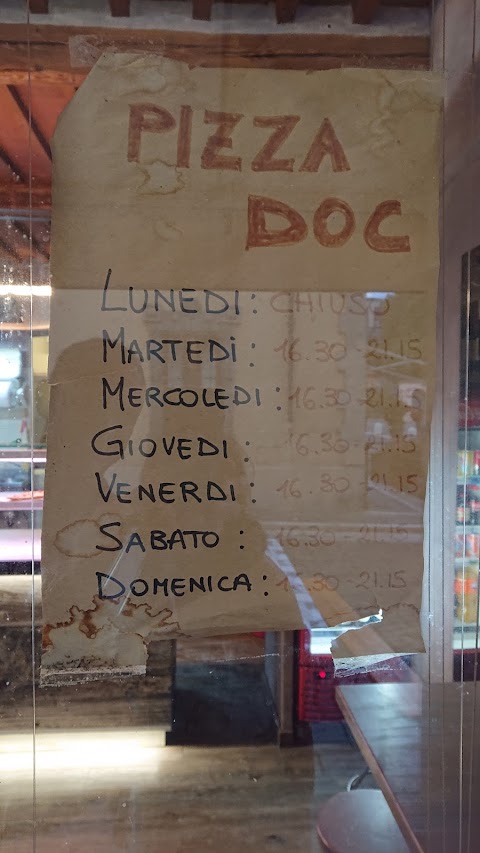 PIZZA
DOC
LUNEDI: CHIUSO
MARTEDÌ: 16.30-21.15
MERCOLEDI: 16.30-21.15
GIOVEDI: 16.30-21.15
VENERDI: 16.30-21.15
SABATO: 16.30-21.15
DOMENICA: 15.30-21.15